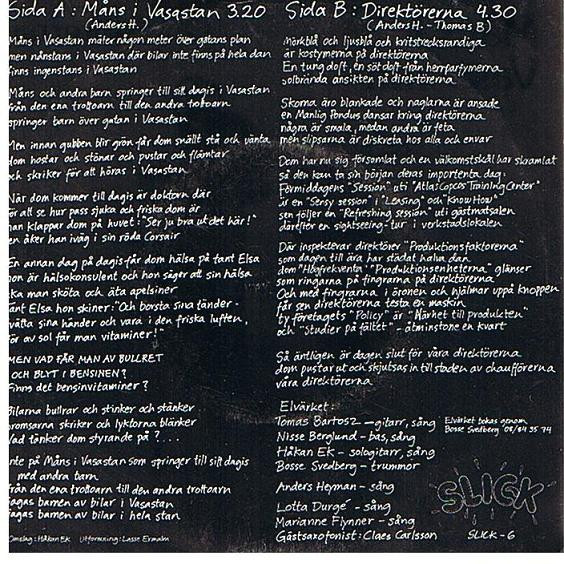 Sida A : Måns i Vasastan 3.20
(Anders H.)
Måns i Vasastan mäter någon meter över gatans plan
men nånstans i Vasastan där bilar inte finns på hela dan
finns ingenstans i Vasastan
Måns och andra barn springer till sitt dagis i Vasastan
från den ena trottoarn till den andra trottoarn
springer barn över gatan i Vasastan
Men innan gubben blir grön får dom snällt stå och vänta
dom hostar och stönar och pustar och flämtar
och skriker för att höras i Vasastan
När dom kommer till dagis är doktorn där
för att se hur pass sjuka och friska dom är
han klappar dom på huvet: "Ser ju bra ut det här!"
en åker han iväg i sin röda Corsair
En annan dag på dagis får dom hälsa på tant Elsa
hon är hälsokonsulent och hon säger att sin hälsa
ska man sköta och äta apelsiner
tant Elsa hon skiner: "Och borsta sina tänder -
tvätta sina händer och vara i den friska luften,
för av sol får man vitaminer!"
MEN VAD FÅR MAN AV BULLRET
OCH BLYT I BENSINEN?
Finns det bensinvitaminer?
Bilarna bullrar och stinker och stänker
bromsarna skriker och lyktorna blänker
Vad tänker dom styrande på?...
Inte på Måns i Vasastan som springer till sitt dagis
med andra barn
från den ena trottoarn till den andra trottoarn
jagas barnen av bilar i Vasastan
jagas barnen av bilar i hela stan
Omslag: Håkan Ek Utformning: Lasse Ermalm
Sida B : Direktörerna 4.30
(Anders H. - Thomas B)
Mörkblå och ljusblå och kritstrecksrandiga
är kostymerna på direktörerna
En tung doft, en söt doft från herrparfymerna
solbrända ansikten på direktörerna
Skorna äro blankade och naglarna är ansade
en Manlig Pondus dansar kring direktörerna
några är smala, medan andra är feta
men slipsarna är diskreta hos alla och envar
Dom har nu sig församlat och en välkomstskål har skramlat
så den kan ta sin början deras importenta dag:
Förmiddagens "Session" uti "Atlas Copcos Training Center"
är en "Sersy session" i "Leasing" och "Know How"
sen följer en "Refreshing session" uti gästmatsalen
därefter en sightseeing-tur i verkstadslokalen
Där inspekterar direktörer "Produktionsfaktorerna"
som dagen till ära har städat halla dan
dom "Högfrekventa" "Produktionsenheterna" glänser
som ringarna på fingrarna på direktörerna
Och med fingrarna i öronen och hjälmar uppå knoppen
får sen direktörerna testa en maskin
ty företagets "Policy" är "Närhet till produkten"
och "Studier på fältet" - åtminstone en kvart
Så äntligen är dagen slut för våra direktörerna
dom pustar ut och skjutsas in till staden av chaufförerna
våra direktörerna
Elverket:
Tomas Bartosz - gitarr, sång
Nisse Berglund - bas, sång
Håkan Ek - sologitarr, sång
Bosse Svedberg - trummor
Anders Heyman - sång
Lotta Durgé - sång
Marianne Flynner - sång
Gästsaxofonist: Claes Carlsson
Elverket bokas genom
Bosse Svedberg 08/64 35 74
SLICK
SLICK - 6